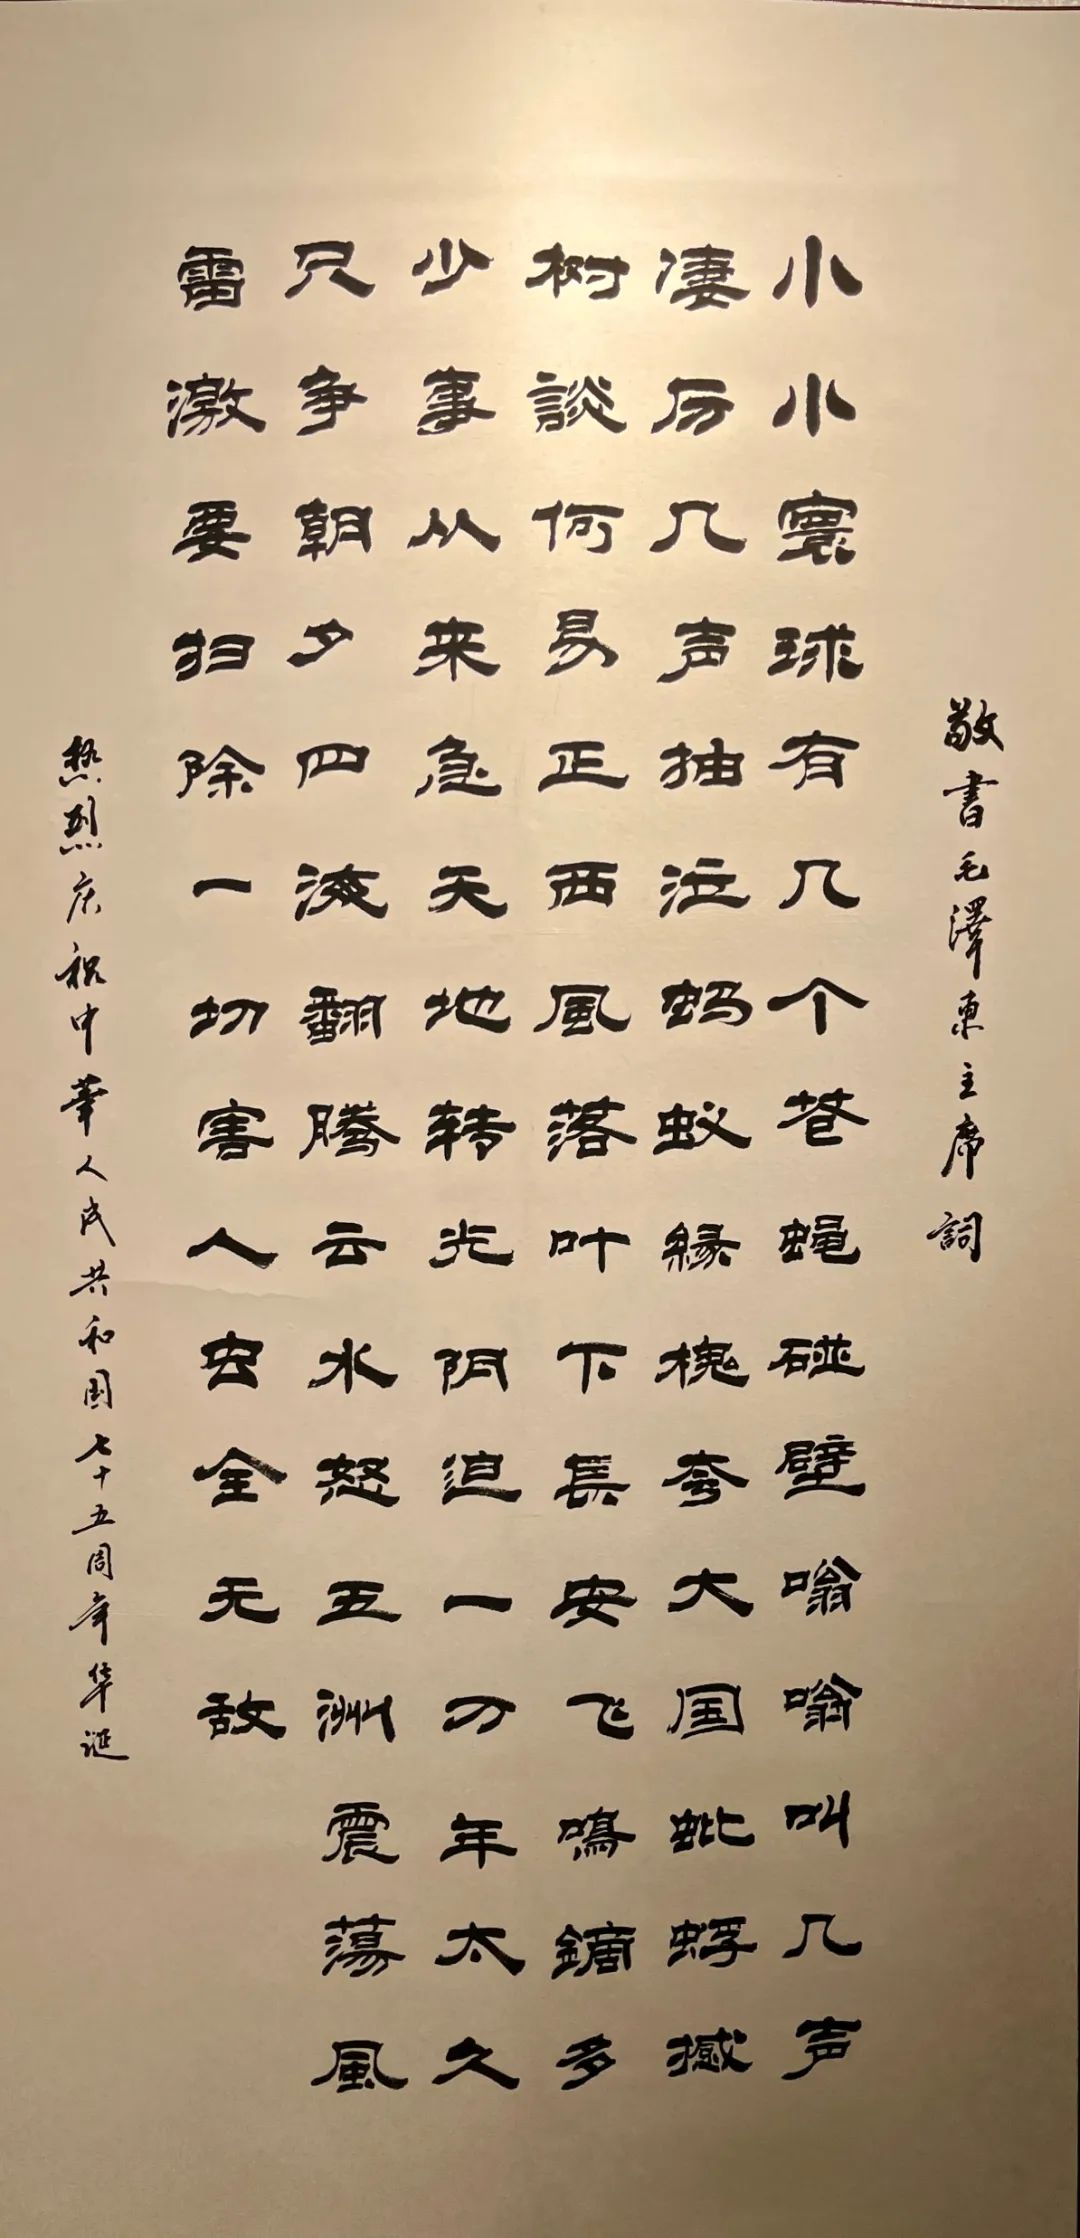 敬書毛澤東主席詞
小小寰球有几个苍蝇碰壁嗡嗡叫几声
凄厉几声抽泣蚂蚁緣槐夸大国蚍蜉撼
树談何易正西風落叶下長安飞鳴鏑多
少事从来急天地转光阴迫一万年太久
只争朝夕四海翻腾云水怒五洲震荡風
雷激要扫除一切害人虫全无敌
热烈庆祝中華人民共和国七十五周年华誕